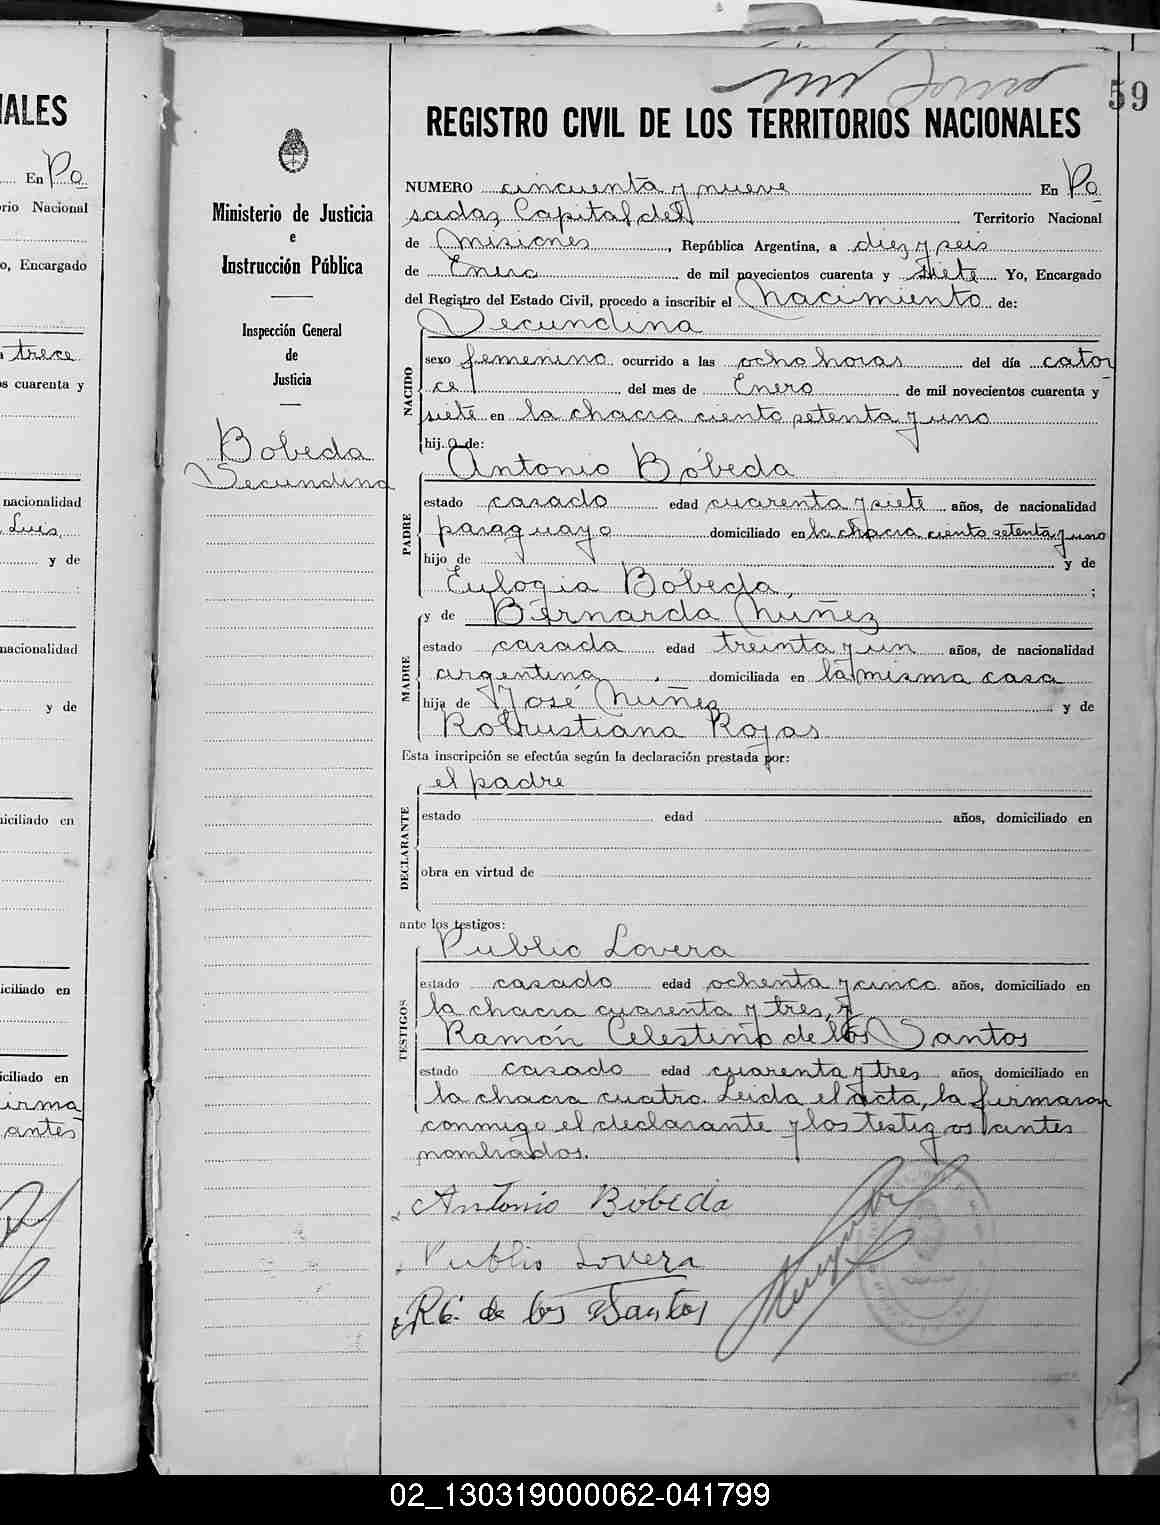 59
REGISTRO CIVIL DE LOS TERRITORIOS NACIONALES
Ministerio de Justicia
e
Instrucción Pública
Inspección General
de
Justicia
Bóbeda
Secundina
NUMERO cincuenta y nueve En Po
sadas, Capital del Territorio Nacional
de Misiones, República Argentina, a diez y seis
de Enero de mil novecientos cuarenta y siete Yo, Encargado
del Registro del Estado Civil, procedo a inscribir el Nacimiento de:
Secundina
NACIDO
sexo femenino ocurrido a las ocho horas del día cator
ce del mes de Enero de mil novecientos cuarenta y
siete en la chacra ciento setenta y uno
hij a de:
Antonio Bóbeda
PADRE
estado casado edad cuarenta y siete años, de nacionalidad
paraguayo domiciliado en la chacra ciento setenta y uno
hijo de y de
Eulogia Bóbeda, ;
y de Bernarda Nuñez
MADRE
estado casada edad treinta y un años, de nacionalidad
argentina, domiciliada en la misma casa
hija de José Nuñez y de
Robustiana Rojas
Esta inscripción se efectúa según la declaración prestada por:
el padre
DECLARANTE
estado edad años, domiciliado en
obra en virtud de
ante los testigos:
Publio Lovera
TESTIGOS
estado casado edad ochenta y cinco años, domiciliado en
la chacra cuarenta y tres, y
Ramón Celestino de los Santos
estado casado edad cuarenta y tres años, domiciliado en
la chacra cuatro. Leida el acta, la firmaron
conmigo el declarante y los testigos antes
nombrados.
Antonio Bóbeda
Publio Lovera
R C. de los Santos
IALES
En Po
rio Nacional
o, Encargado
trece
s cuarenta y
nacionalidad
Luis,
y de
nacionalidad
y de
iciliado en
iciliado en
iciliado en
irma
antes
02_130319000062-041799